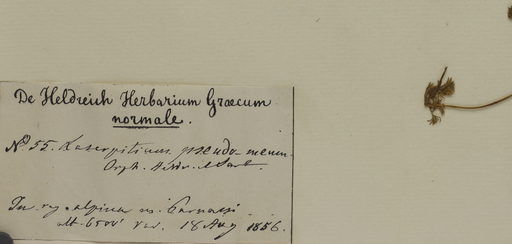 De Heldreich Herbarium Graecum
normale.
No 55. Laserpitium pseudo-meum
Orph. Heldr. et Sart.
In reg. alpina m. Parnassi
alt. 6500' 18 Aug 1856.